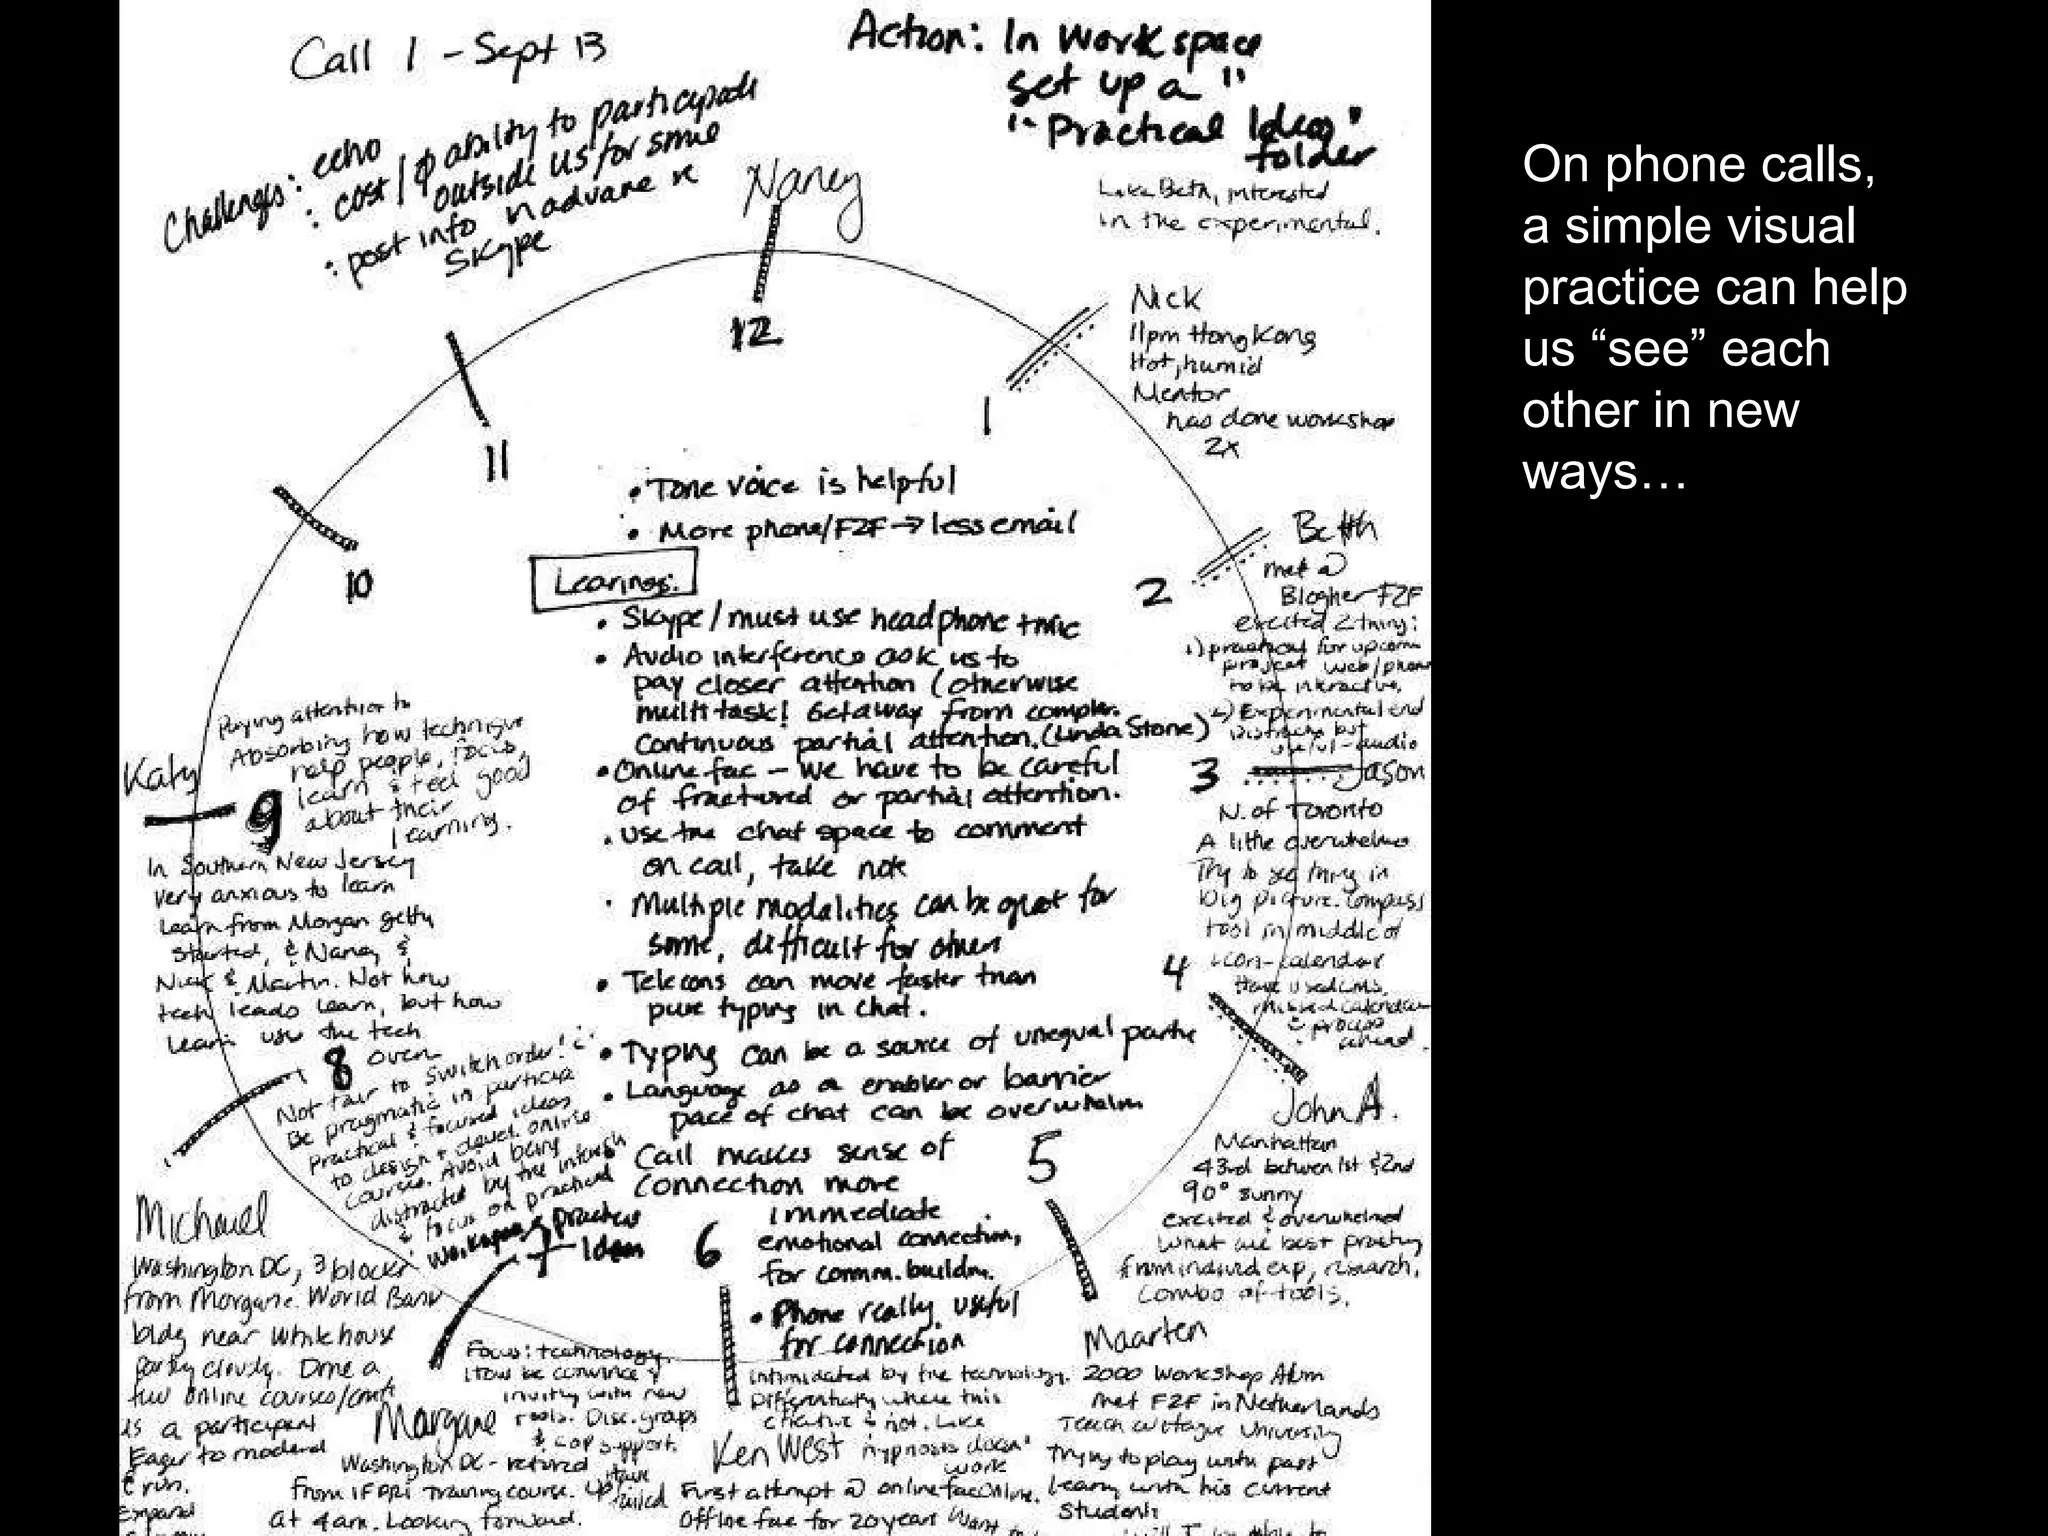 Call 1 - Sept 13
Challenges: echo
: cost/ability to participate
outside US for some
: post info in advance re
Skype
Action: In Workspace
set up a "
"Practical Ideas"
folder
Nancy
Like Beth, interested
in the experimental.
12
Nick
11pm Hong Kong
Hot, humid
Mentor
has done workshop
2x
1
11
10
• Tone voice is helpful
• More phone/F2F → less email
Learnings:
• Skype/must use headphone + mic
• Audio interference ask us to
pay closer attention (otherwise
multitask! Getaway from computer.
Continuous partial attention. (Linda Stone)
• Online fac - we have to be careful
of fractured or partial attention.
• Use the chat space to comment
on call, take note
• Multiple modalities can be great for
some, difficult for others
• Telecons can move faster than
pure typing in chat.
• Typing can be a source of unequal partic
• Language as a enabler or barrier
pace of chat can be overwhelm
Call makes sense of
connection more
immediate
emotional connection,
for comm. buildin.
• Phone really useful
for connection
2
Beth
met @
Blogher F2F
excited 2 things:
1) practical for upcoming
project web/phone
to be interactive.
2) Experimental end
useful - audio
3
Jason
N. of Toronto
A little overwhelmed
Try to see thing in
big picture. Compass
tool in middle of
icon - calendar
Have used CMS.
Missed calendar
& process
ahead.
4
John A.
Manhattan
43rd between 1st & 2nd
90° sunny
excited & overwhelmed
What are best practices
from individ exp, research,
combo of tools.
5
Maarten
2000 Workshop Alum
met F2F in Netherlands
Teach @ Hague University
Trying to play with past
learning with his current
students
6
Intimidated by the technology.
Differentiate where this
creative & not. Like
Ken West hypnosis doesn't
work
First attempt @ online fac online.
Offline fac for 20 years Want
7
Workspace practices
Idea
Focus: technology.
How be convince &
inviting with new
tools. Disc. groups
& COP support.
Have
failed
Morgane
Washington DC - returned
from IFPRI training course. Up
at 4am. Looking forward.
8
over
Not fair to switch order!
Be pragmatic in particip
Practical & focused ideas
to design & devel. online
courses. Avoid being
distracted by the interesting
& focus on practical
Michael
Washington DC, 3 blocks
from Morgane. World Bank
bldg near White House
partly cloudy. Done a
few online courses/conf
is a participant
Eager to moderate
& run.
Expand
9
Katy
Paying attention to
Absorbing how technique
help people, focus,
learn & feel good
about their
learning.
In Southern New Jersey
very anxious to learn
Learn from Morgan getting
started, & Nancy &
Nick & Martin. Not how
tech leads learn, but how
learn use the tech
On phone calls,
a simple visual
practice can help
us “see” each
other in new
ways…